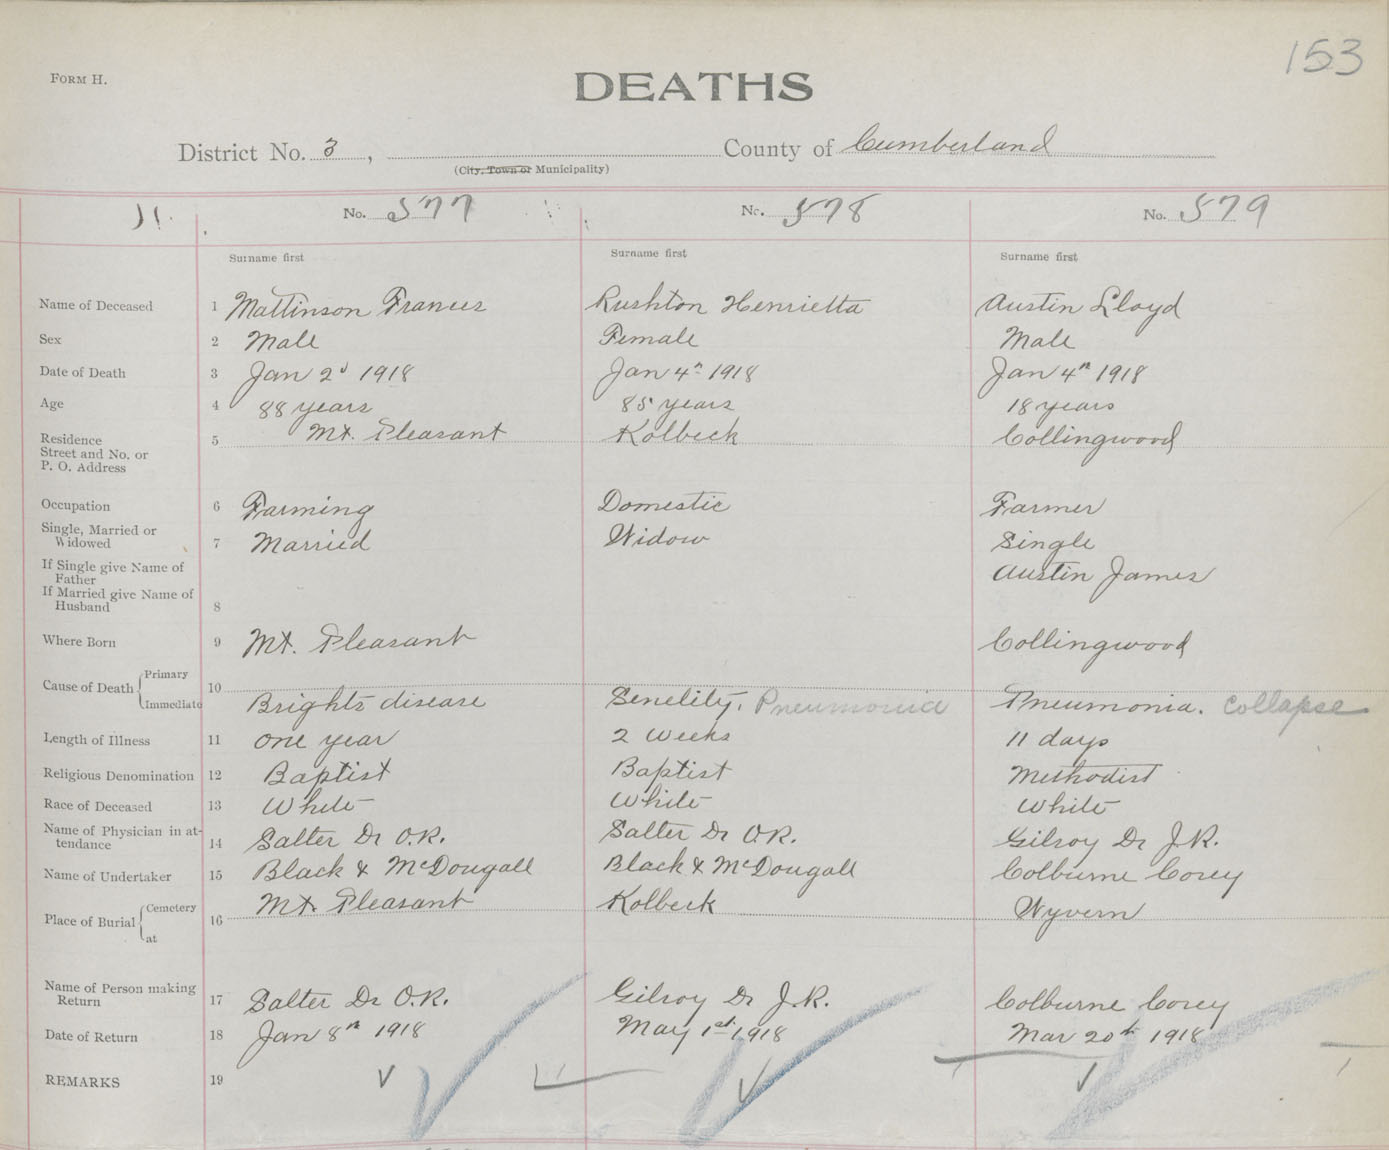 153
FORM H.
DEATHS
District No. 3, County of Cumberland
(City, Town or Municipality)
No. 577 No. 578 No. 579
Surname first Surname first Surname first
Name of Deceased 1 Mattinson Frances Rushton Henrietta Austin Lloyd
Sex 2 Male Female Male
Date of Death 3 Jan 2d 1918 Jan 4th 1918 Jan 4th 1918
Age 4 88 years 85 years 18 years
Residence 5 Mt. Pleasant Kolbeck Collingwood
Street and No. or
P. O. Address
Occupation 6 Farming Domestic Farmer
Single, Married or
Widowed 7 Married Widow Single
If Single give Name of
Father Austin James
If Married give Name of
Husband 8
Where Born 9 Mt. Pleasant Collingwood
Cause of Death Primary 10
Immediate Brights disease Senelity. Pneumonia Pneumonia. Collapse
Length of Illness 11 one year 2 weeks 11 days
Religious Denomination 12 Baptist Baptist Methodist
Race of Deceased 13 White White White
Name of Physician in at-
tendance 14 Salter Dr O.R. Salter Dr O.R. Gilroy Dr J.R.
Name of Undertaker 15 Black & McDougall Black & McDougall Colburne Corey
Place of Burial Cemetery 16 Mt. Pleasant Kolbeck Wyvern
at
Name of Person making
Return 17 Salter Dr O.R. Gilroy Dr J.R. Colburne Corey
Date of Return 18 Jan 8th 1918 May 1st 1918 Mar 20th 1918
REMARKS 19